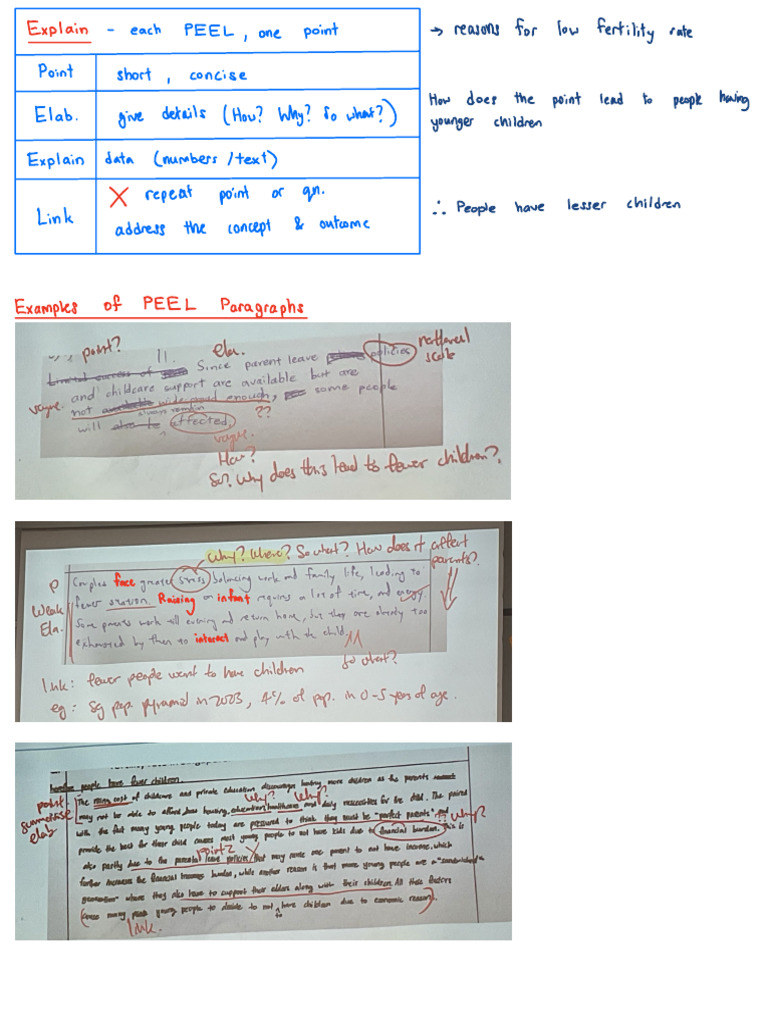 Explain - each PEEL, one point
→ reasons for low fertility rate
Point short, concise
Elab. give details (How? Why? So what?)
How does the point lead to people having
younger children
Explain data (numbers /text)
Link X repeat point or qn.
address the concept & outcome
∴ People have lesser children
Examples of PEEL Paragraphs
point? ela. national
scale
11. Since parent leave policies
Limited success of
and childcare support are available but are
vague. not widespread enough, some people
always remain ??
will also be affected.
vague.
How?
So? Why does this lead to fewer children?
Why? Where? So what? How does it affect
parents?
P Couples face greater stress balancing work and family life, leading to
Weak fewer Raising an infant requires a lot of time, and energy.
Ela. Some parents work till evening and return home, but they are already too
exhausted by then to interact and play with the child.
So what?
link: fewer people want to have children
eg: Sg pop. pyramid in 2023, 4% of pop. in 0-5 years of age.
people have fewer children.
point. The rising cost of childcare and private education discourages having more children as the parents
Why? Why?
summarise may not be able to afford housing, education, healthcare and daily necessities for the child. The paired
elab with the fact many young people today are pressured to think they must be "perfect parents" and
?? why?
provide the best for their child causes most young people to not have kids due to financial burden. This is
point 2 X
also partly due to the parental leave policies that may cause one parent to not have income, which
further increases the financial burden, while another reason is that more young people are a "sandwiched
generation" where they also have to support their elders along with their children. All these factors
cause many young people to decide to not have children due to economic reasons.
link.